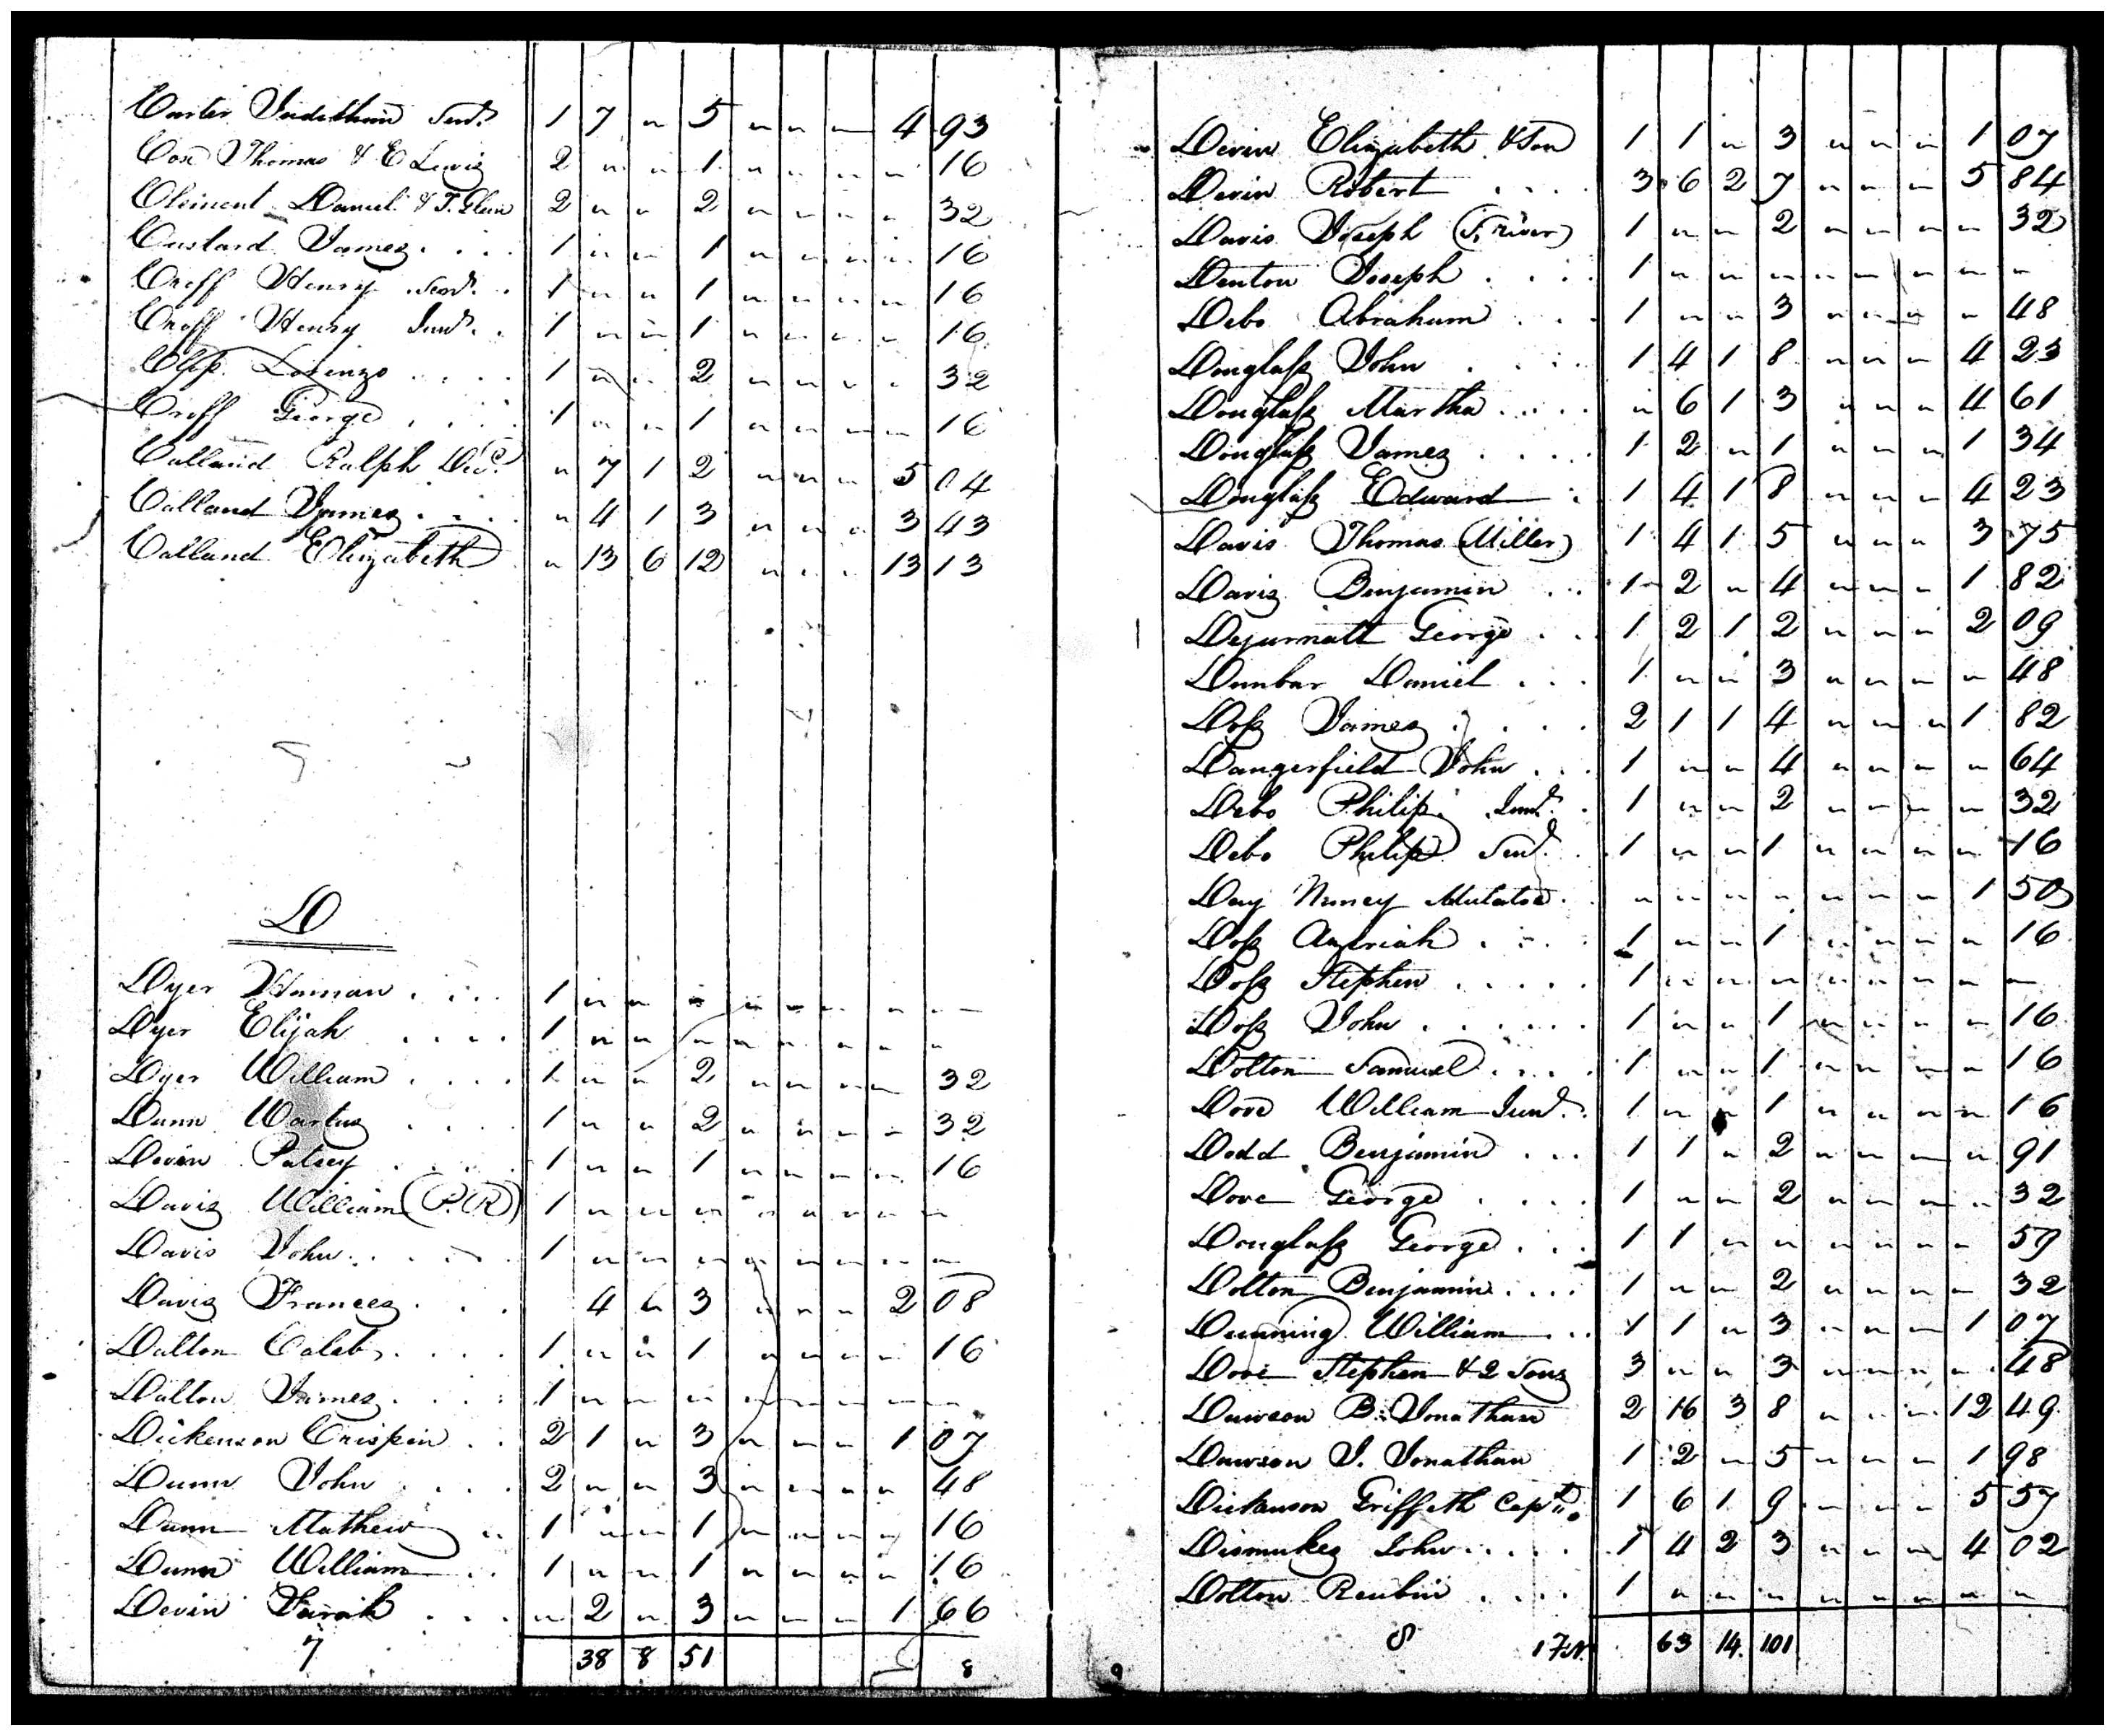 Carter Jedethan Senr. 1 7 " 5 " " " 4 93
Cox Thomas & E Lewis 2 " " 1 " " " " 16
Clement Daniel & T. Glenn 2 " " 2 " " " " 32
Custard James . . . 1 " " 1 " " " " 16
Creff Henry Senr. . 1 " " 1 " " " " 16
Creff Henry Junr. . 1 " " 1 " " " " 16
Lorenzo . . . . 1 " " 2 " " " " 32
Creff George . . . 1 " " 1 " " " " 16
Calland Ralph Decd. " 7 1 2 " " " 5 04
Calland James . . . " 4 1 3 " " " 3 43
Calland Elizabeth " 13 6 12 " " " 13 13
D
Dyer Haman . . . 1 " " " " " " " "
Dyer Elijah . . . . 1 " " " " " " " "
Dyer William . . . . 1 " " 2 " " " " 32
Dunn . . . . 1 " " 2 " " " " 32
Devin Patsey . . . . 1 " " 1 " " " " 16
Davis William (P.R) 1 " " " " " " " "
Davis John . . . . 1 " " " " " " " "
Davis Frances . . . 4 " 3 " " " 2 08
Dalton Caleb . . . . 1 " " 1 " " " " 16
Dalton James . . . . 1 " " " " " " " "
Dickenson Crispin . . 2 1 " 3 " " " 1 07
Dunn John . . . . 2 " " 3 " " " " 48
Dunn Mathew . . 1 " " 1 " " " " 16
Dunn William . . 1 " " 1 " " " " 16
Devin Sarah . . . " 2 " 3 " " " 1 66
7 38 8 51 8
Devin Elizabeth & Son 1 1 " 3 " " " 1 07
Devin Robert . . . 3 6 2 7 " " " 5 84
Davis Joseph (S, river) 1 " " 2 " " " " 32
Denton Joseph . . . . 1 " " " " " " " "
Debo Abraham . . . 1 " " 3 " " " " 48
Douglass John . . . . 1 4 1 8 " " " 4 23
Douglass Martha . . . . " 6 1 3 " " " 4 61
Douglass James . . . . 1 2 " 1 " " " 1 34
Douglass Edward . 1 4 1 8 " " " 4 23
Davis Thomas (Miller) 1 4 1 5 " " " 3 75
Davis Benjamin . . . 1 2 " 4 " " " 1 82
Dejarnatt George . . . 1 2 1 2 " " " 2 09
Dunbar Daniel . . . 1 " " 3 " " " " 48
Doss James . . . . 2 1 1 4 " " " 1 82
Dangerfield John . . . 1 " " 4 " " " " 64
Debo Philip Junr. . 1 " " 2 " " " " 32
Debo Philip Senr. . 1 " " 1 " " " " 16
Day Nancy Mulatoe . " " " " " " " 1 50
Doss Azariah . . . . 1 " " 1 " " " " 16
Doss Stephen . . . . . 1 " " " " " " " "
Doss John . . . . . . 1 " " 1 " " " " 16
Dolton Samuel . . . . 1 " " 1 " " " " 16
Dove William Junr. . 1 " " 1 " " " " 16
Dodd Benjamin . . . 1 1 " 2 " " " " 91
Dove George . . . . 1 " " 2 " " " " 32
Douglass George . . . 1 1 " " " " " " 59
Dolton Benjamin . . . . 1 " " 2 " " " " 32
Dunning William . . . 1 1 " 3 " " " 1 07
Dove Stephen & 2 Sons 3 " " 3 " " " " 48
Dawson B. Jonathan 2 16 3 8 " " " 12 49
Dawson J. Jonathan 1 2 " 5 " " " 1 98
Dickenson Griffeth Captn. 1 6 1 9 " " " 5 57
Dismukes John . . . . 1 4 2 3 " " " 4 02
Dolton Reubin . . . . 1 " " " " " " " "
8 63 14 101
9